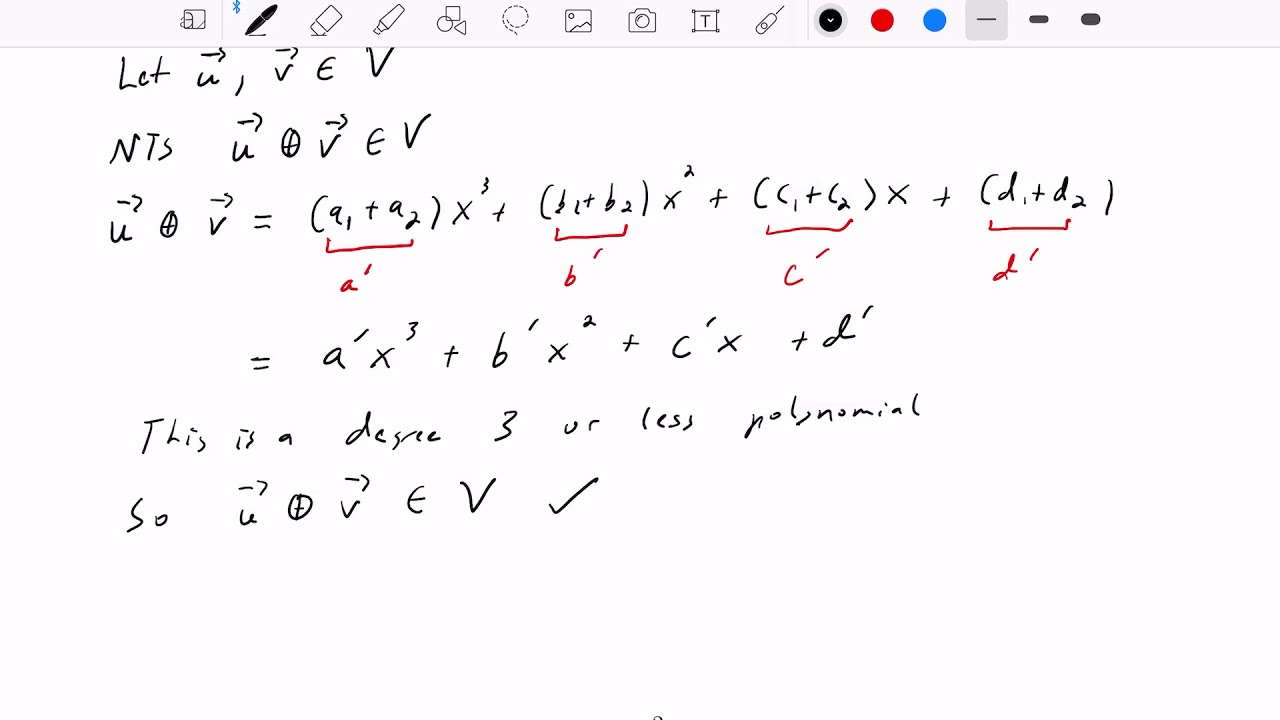 Let u⃗, v⃗ ∈ V
NTS u⃗ ⊕ v⃗ ∈ V
u⃗ ⊕ v⃗ = (a₁ + a₂) x³ + (b₁ + b₂) x² + (c₁ + c₂) x + (d₁ + d₂)
a′ b′ c′ d′
= a′x³ + b′x² + c′x + d′
This is a degree 3 or less polynomial
So u⃗ ⊕ v⃗ ∈ V ✓